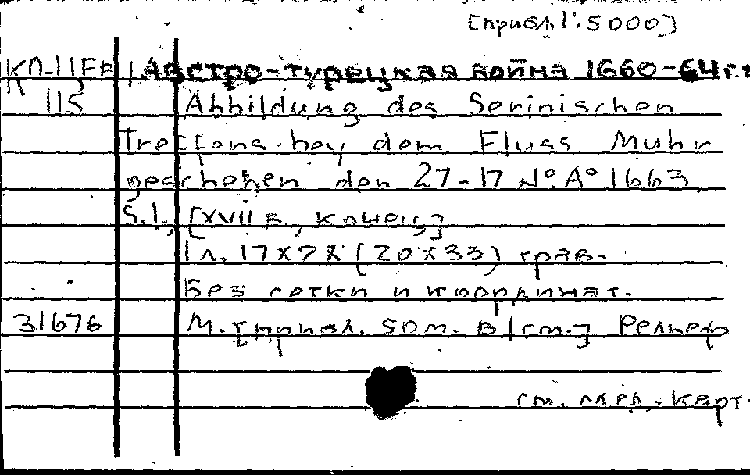 [прибл. 1:5000]
Австро-турецкая война 1660-64 г.г.
115 Abbildung des Serinischen
Treffens bey dem Fluss Muhr
geschehen den 27-17 No Ao 1663
S.l., [XVII в., конец]
1 л. 17х28 (20х33) грав.
Без сетки и координат.
31676 М. [прибл. 50 м. в 1 см.] Рельеф
см. мед. карт.